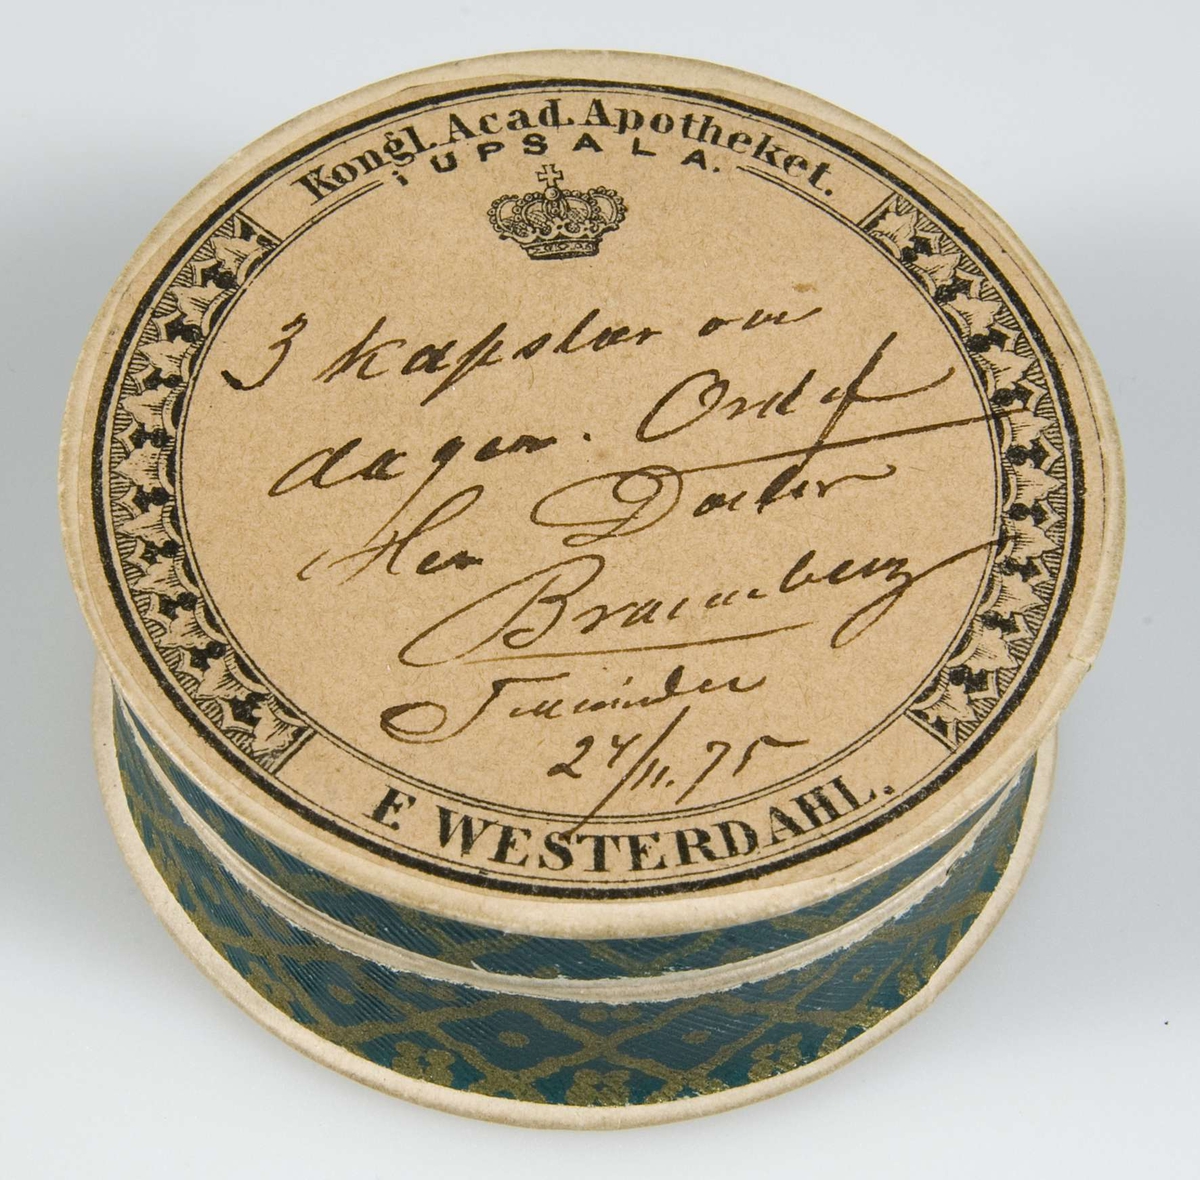 Kongl. Acad. Apotheket.
i UPSALA.
3 kapslar om
dagen. Ord af
Herr Doctor
24/11.75
F. WESTERDAHL.